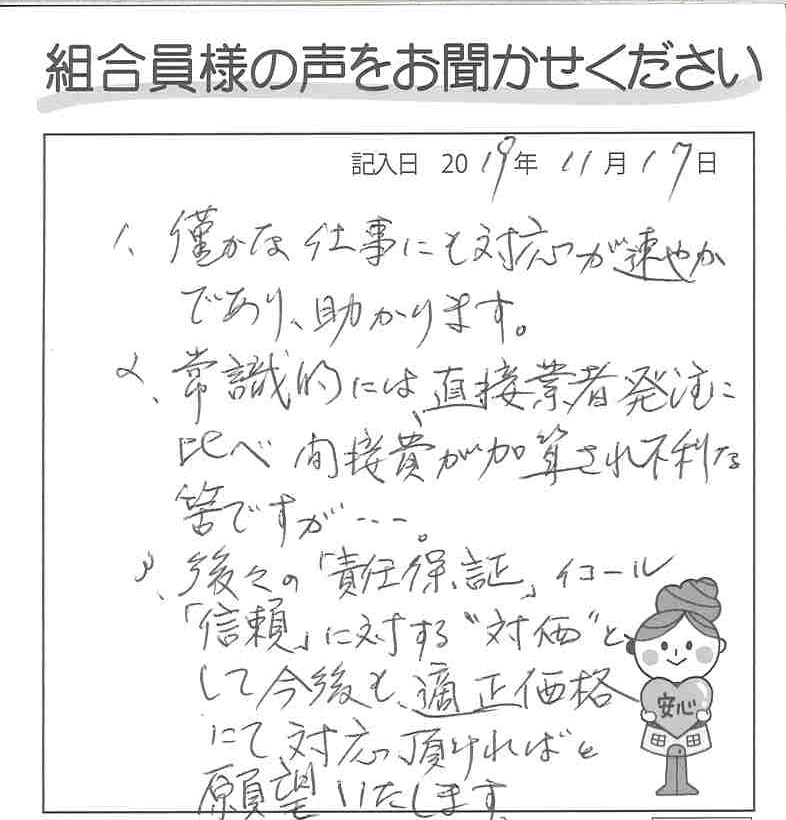 組合員様の声をお聞かせください
記入日 2019年 11月17日
1、僅かな仕事にも対応が速やか
であり、助かります。
2、常識的には、直接業者発注に
比べ間接費が加算され不利な
筈ですが…。
3、後々の「責任保証」イコール
「信頼」に対する“対価”と
して今後も、適正価格
にて対応頂ければと
願望いたします。
安心